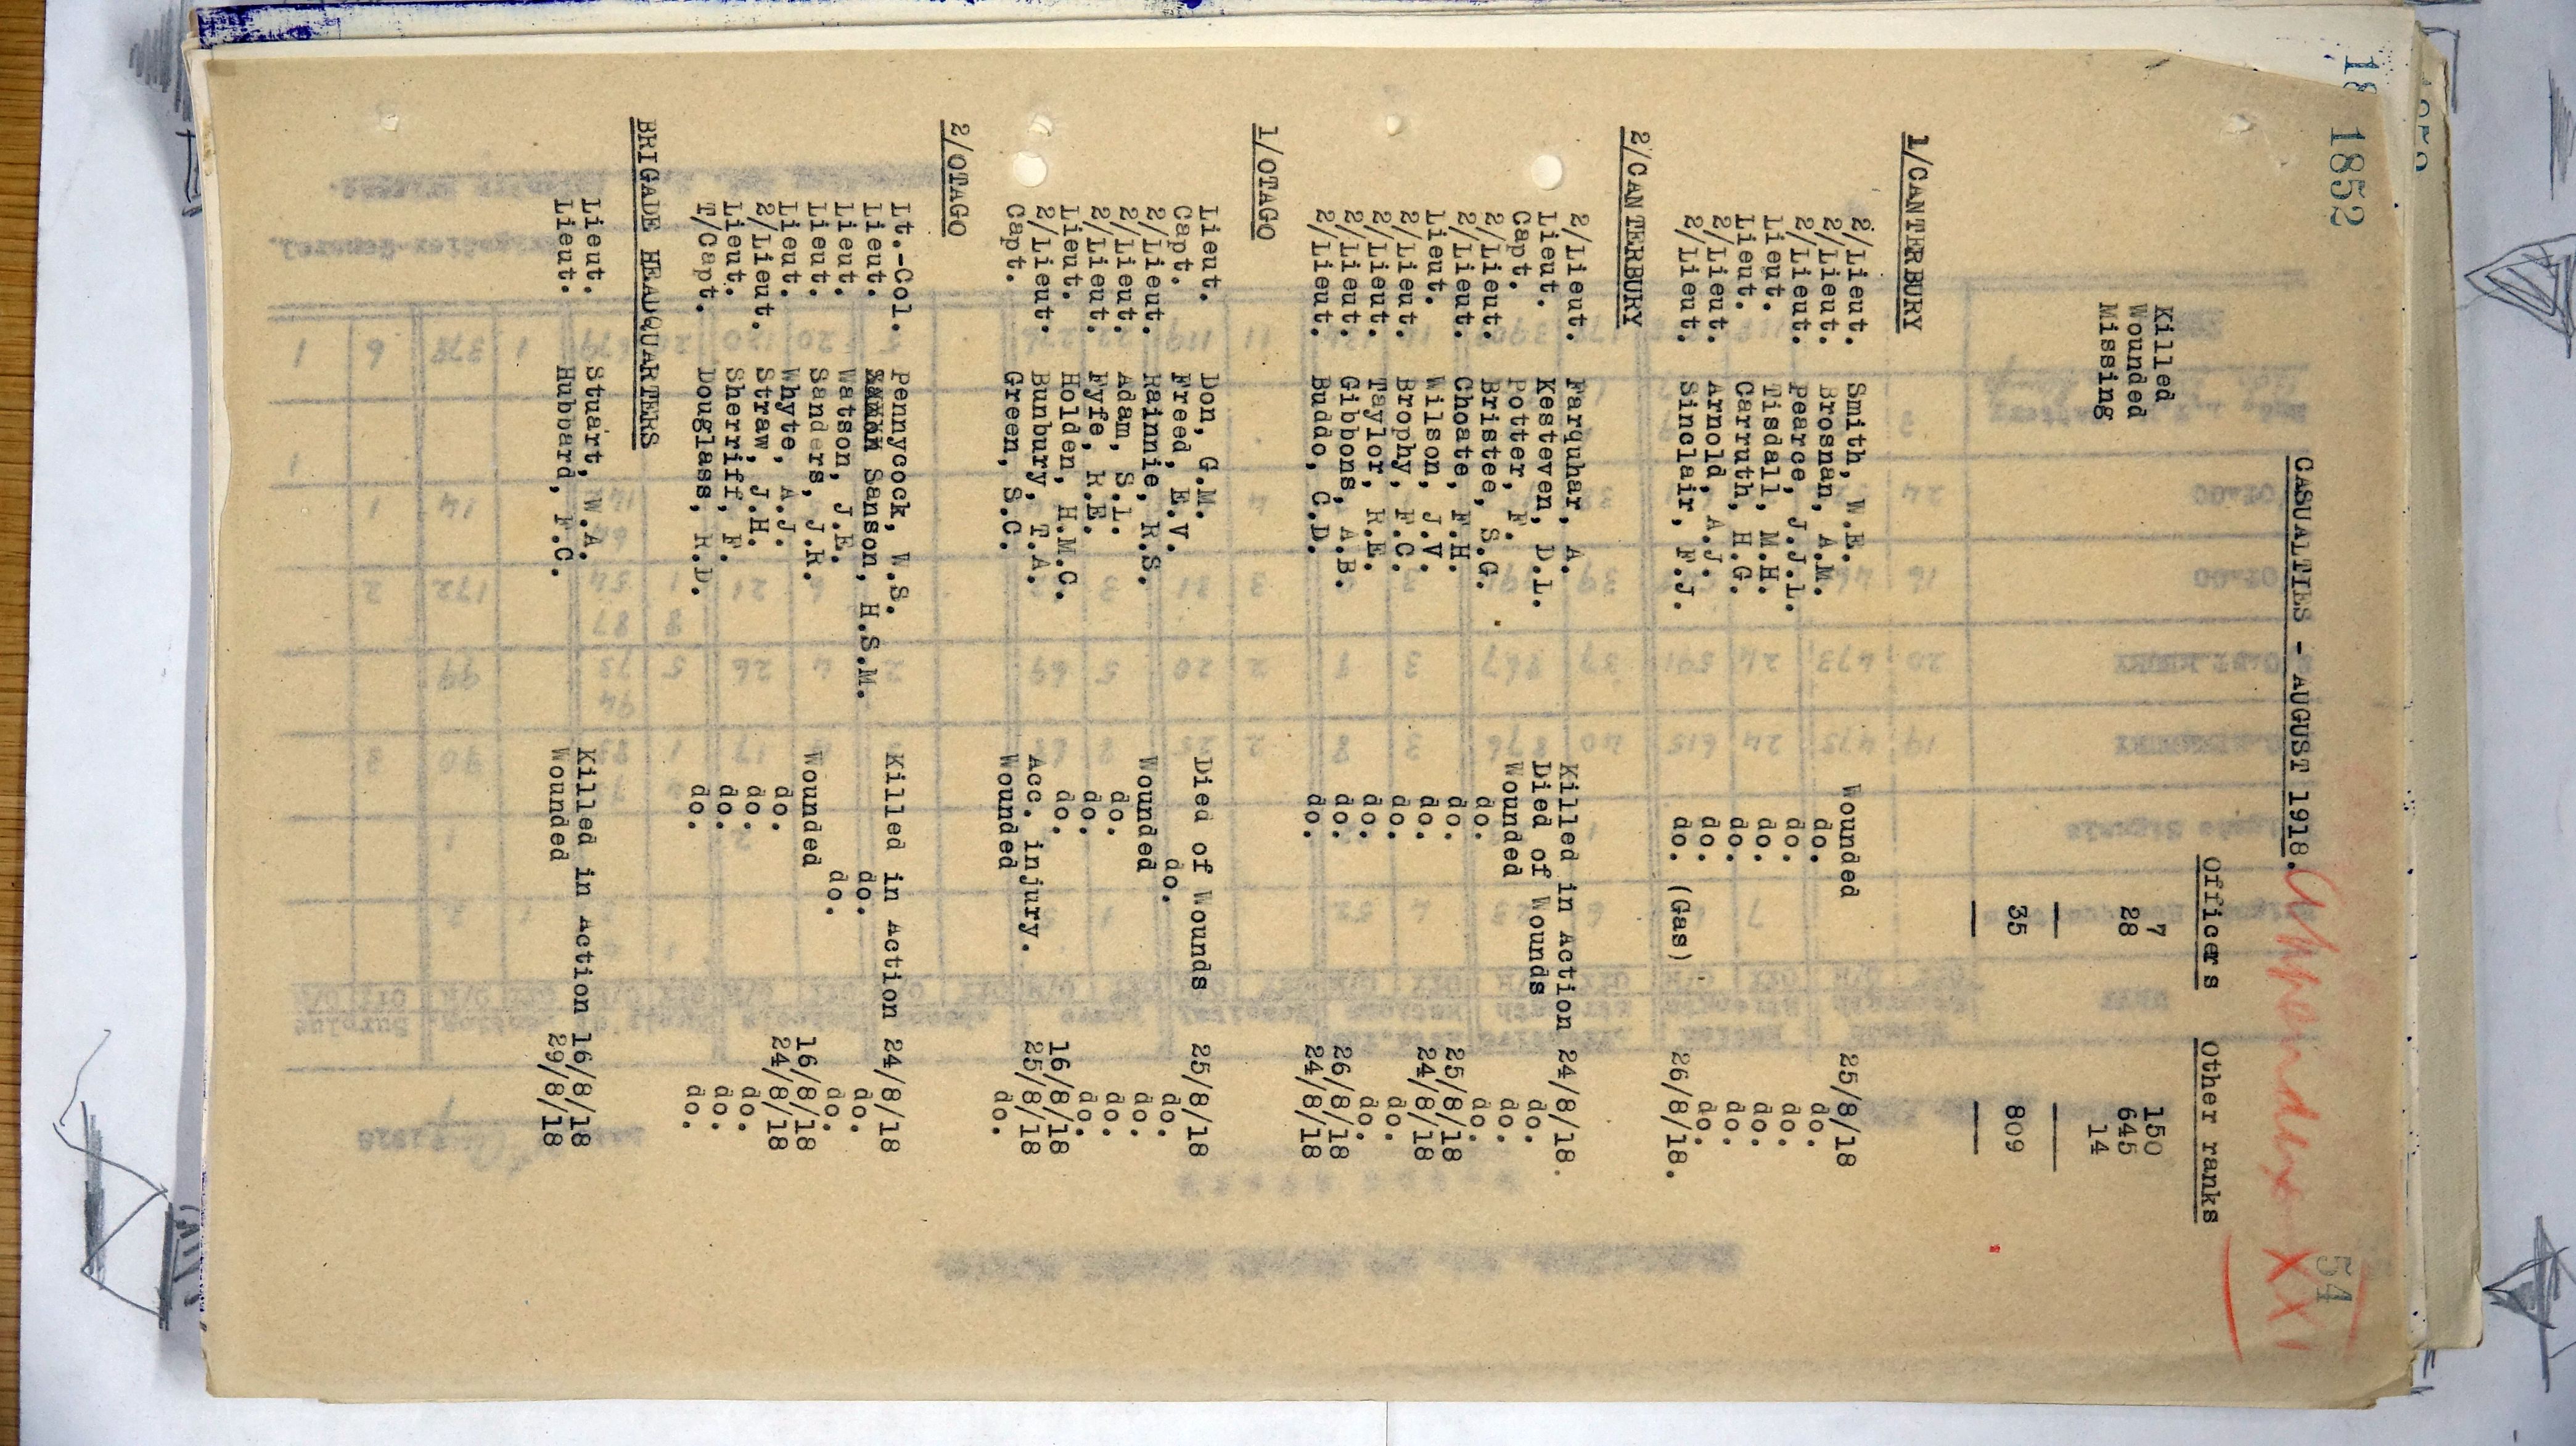 1852
54
Appendix XXI
CASUALTIES - AUGUST 1918.
Officers Other ranks
Killed 7 150
Wounded 28 645
Missing 14
35 809
1/CANTERBURY
2/Lieut. Smith, W.E. Wounded 25/8/18
2/Lieut. Brosnan, A.M. do. do.
2/Lieut. Pearce, J.J.L. do. do.
Lieut. Tisdall, M.H. do. do.
Lieut. Carruth, H.G. do. do.
2/Lieut. Arnold, A.J. do. do.
2/Lieut. Sinclair, F.J. do. (Gas) 26/8/18.
2/CANTERBURY
2/Lieut. Farquhar, A. Killed in Action 24/8/18.
Lieut. Kesteven, D.L. Died of Wounds do.
Capt. Potter, F. Wounded do.
2/Lieut. Bristee, S.G. do. do.
2/Lieut. Choate, F.H. do. 25/8/18
Lieut. Wilson, J.V. do. 24/8/18
2/Lieut. Brophy, F.C. do. do.
2/Lieut. Taylor, R.E. do. do.
2/Lieut. Gibbons, A.B. do. 26/8/18
2/Lieut. Buddo, C.D. do. 24/8/18
1/OTAGO
Lieut. Don, G.M. Died of Wounds 25/8/18
Capt. Freed, E.V. do. do.
2/Lieut. Rainnie, R.S. Wounded do.
2/Lieut. Adam, S.L. do. do.
2/Lieut. Fyfe, R.E. do. do.
Lieut. Holden, H.M.C. do. 16/8/18
2/Lieut. Bunbury, T.A. Acc. injury. 25/8/18
Capt. Green, S.C. Wounded do.
2/OTAGO
Lt.-Col. Pennycock, W.S. Killed in Action 24/8/18
Lieut. Sanson, H.S.M. do. do.
Lieut. Watson, J.E. do. do.
Lieut. Sanders, J.R. Wounded 16/8/18
Lieut. Whyte, A.J. do. 24/8/18
2/Lieut. Straw, J.H. do. do.
Lieut. Sherriff, F. do. do.
T/Capt. Douglass, R.D. do. do.
BRIGADE HEADQUARTERS
Lieut. Stuart, W.A. Killed in Action 16/8/18
Lieut. Hubbard, F.C. Wounded 29/8/18